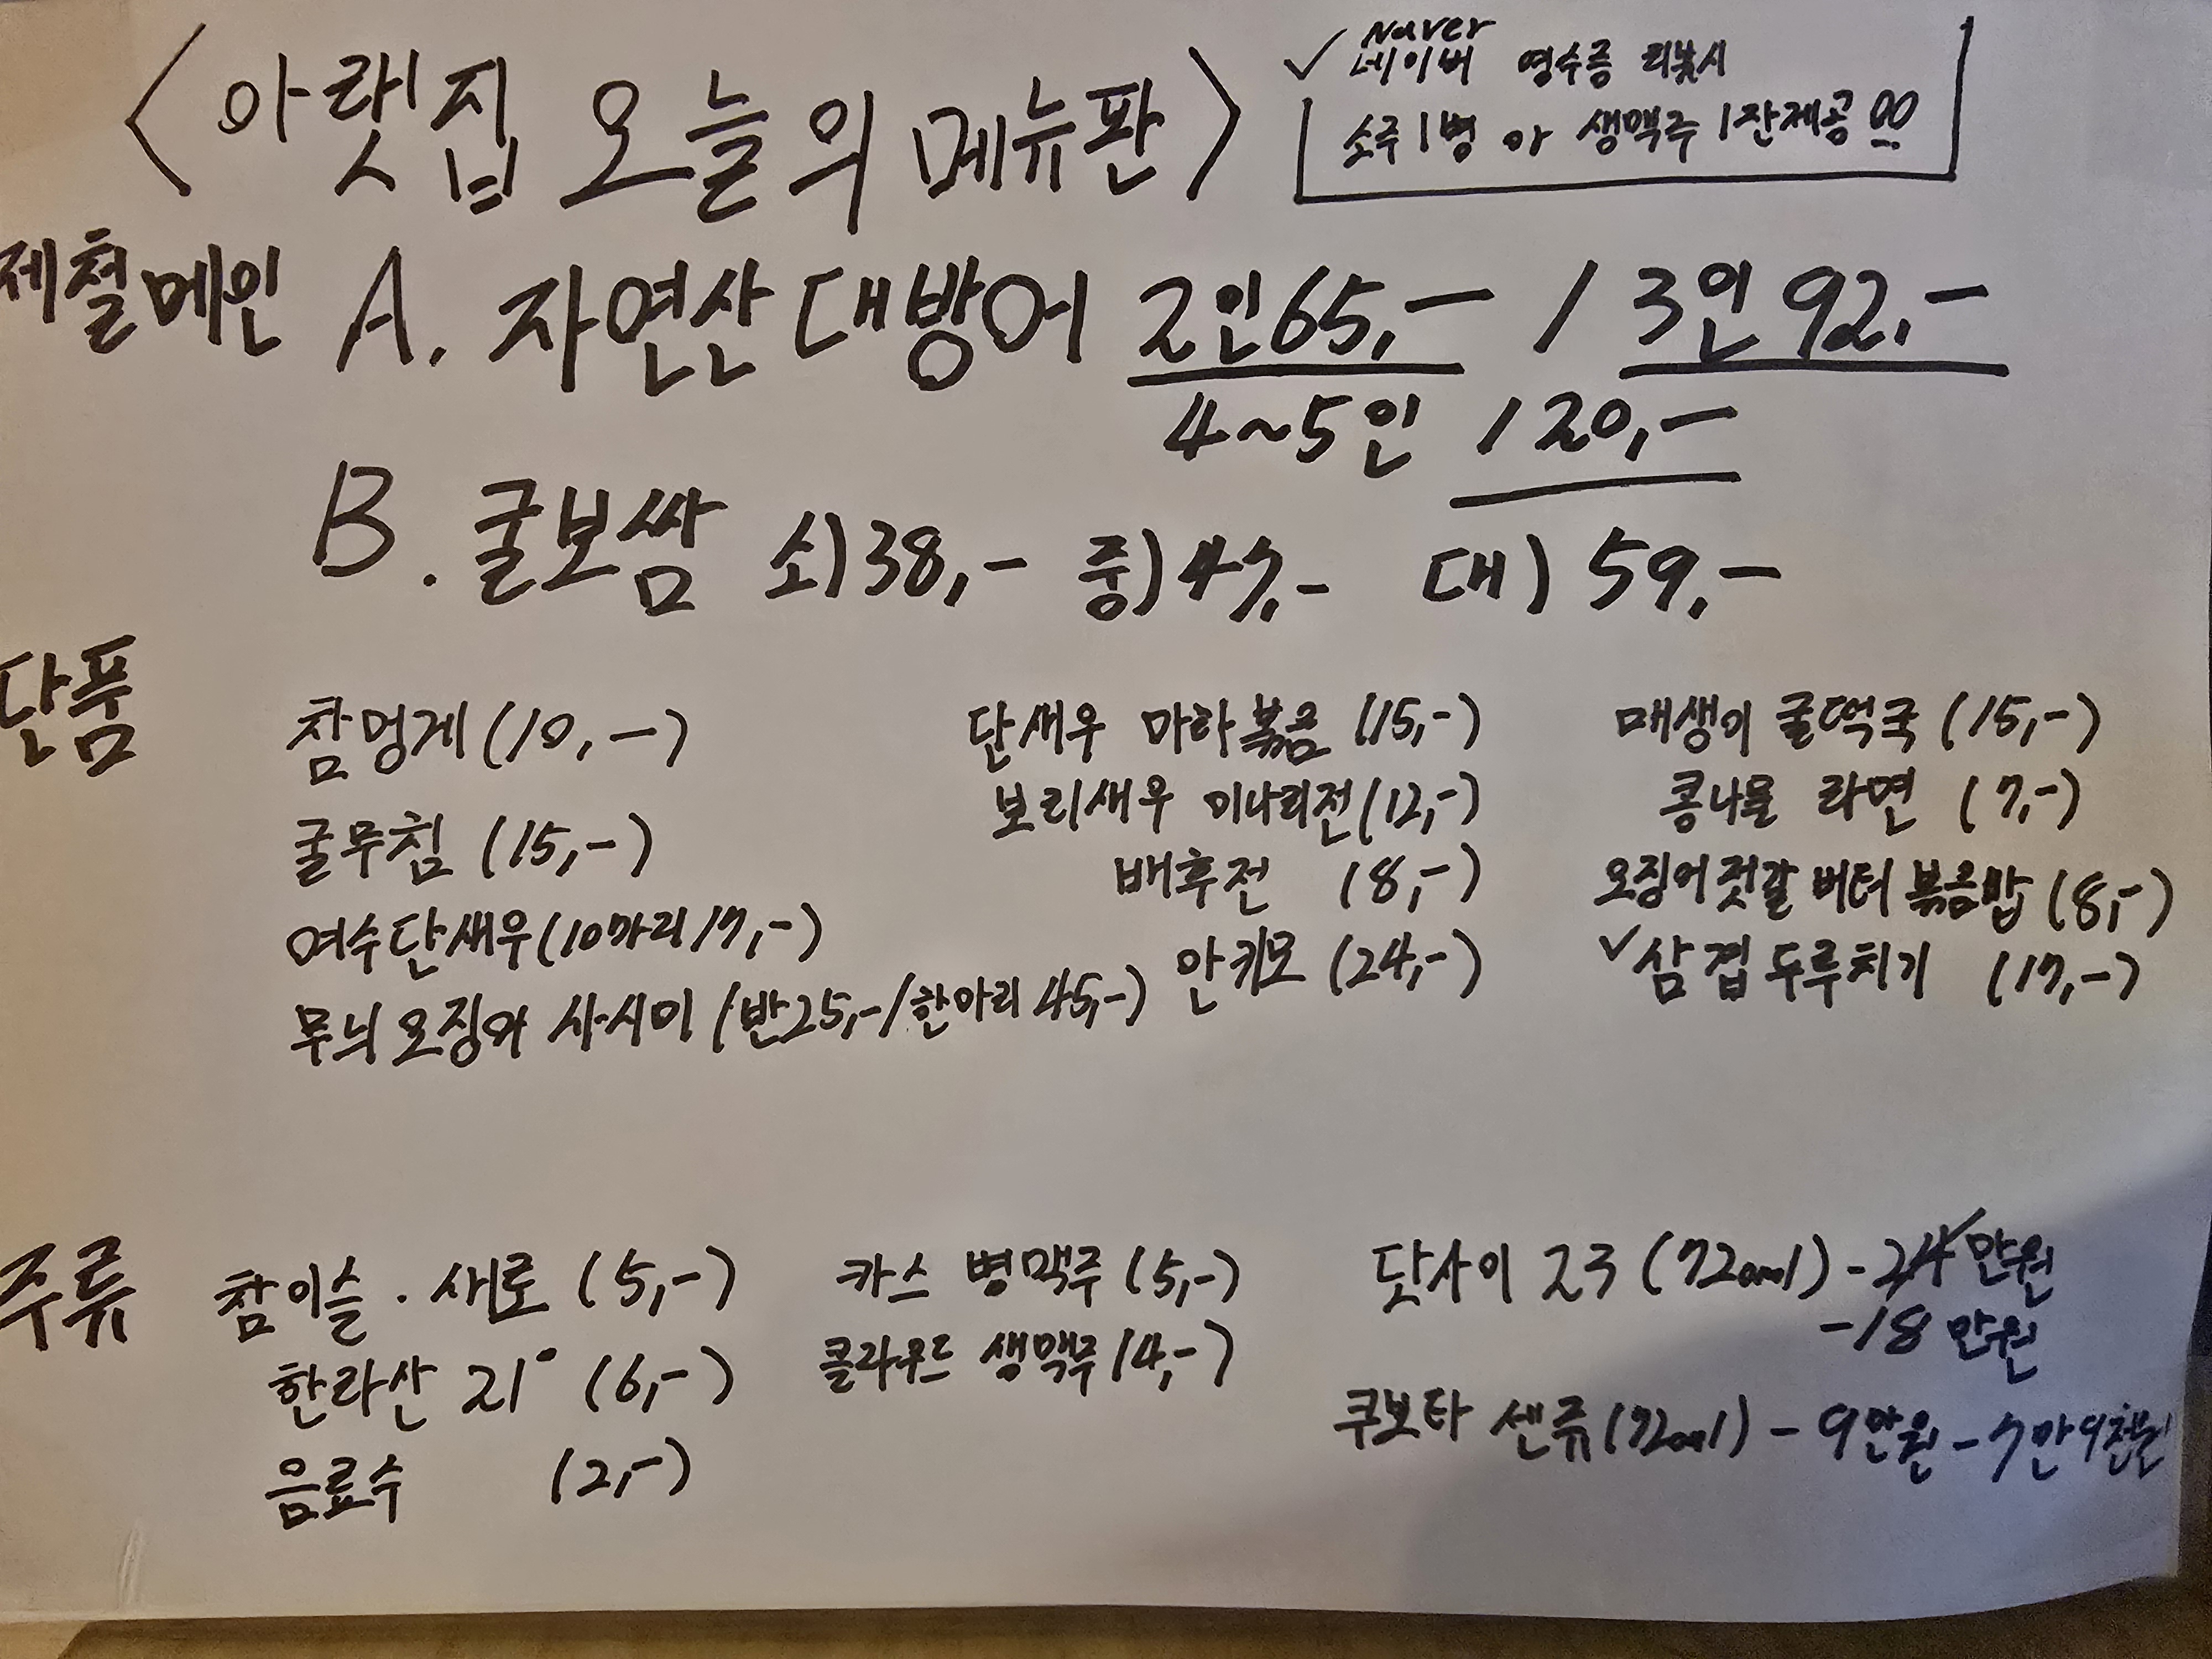 <아랫집 오늘의 메뉴판>
✓ Naver
네이버 영수증 리뷰시
소주 1병 or 생맥주 1잔 제공
제철메인 A. 자연산 대방어 2인 65,- / 3인 92,-
4~5인 120,-
B. 굴보쌈 소) 38,- 중) 47,- 대) 59,-
단품
참멍게 (10,-)
굴무침 (15,-)
여수단새우 (10마리 17,-)
무늬오징어 사시미 (반25,-/한마리 45,-)
단새우 마하볶음 (15,-)
보리새우 미나리전 (12,-)
배추전 (8,-)
안키모 (24,-)
매생이 굴떡국 (15,-)
콩나물 라면 (7,-)
오징어젓갈 버터 볶음밥 (8,-)
✓삼겹 두루치기 (17,-)
주류
참이슬 · 새로 (5,-)
한라산 21° (6,-)
음료수 (2,-)
카스 병맥주 (5,-)
클라우드 생맥주 (4,-)
닷사이 23 (720ml) - 24만원
-18만원
쿠보타 센쥬 (720ml) - 9만원 - 7만9천원